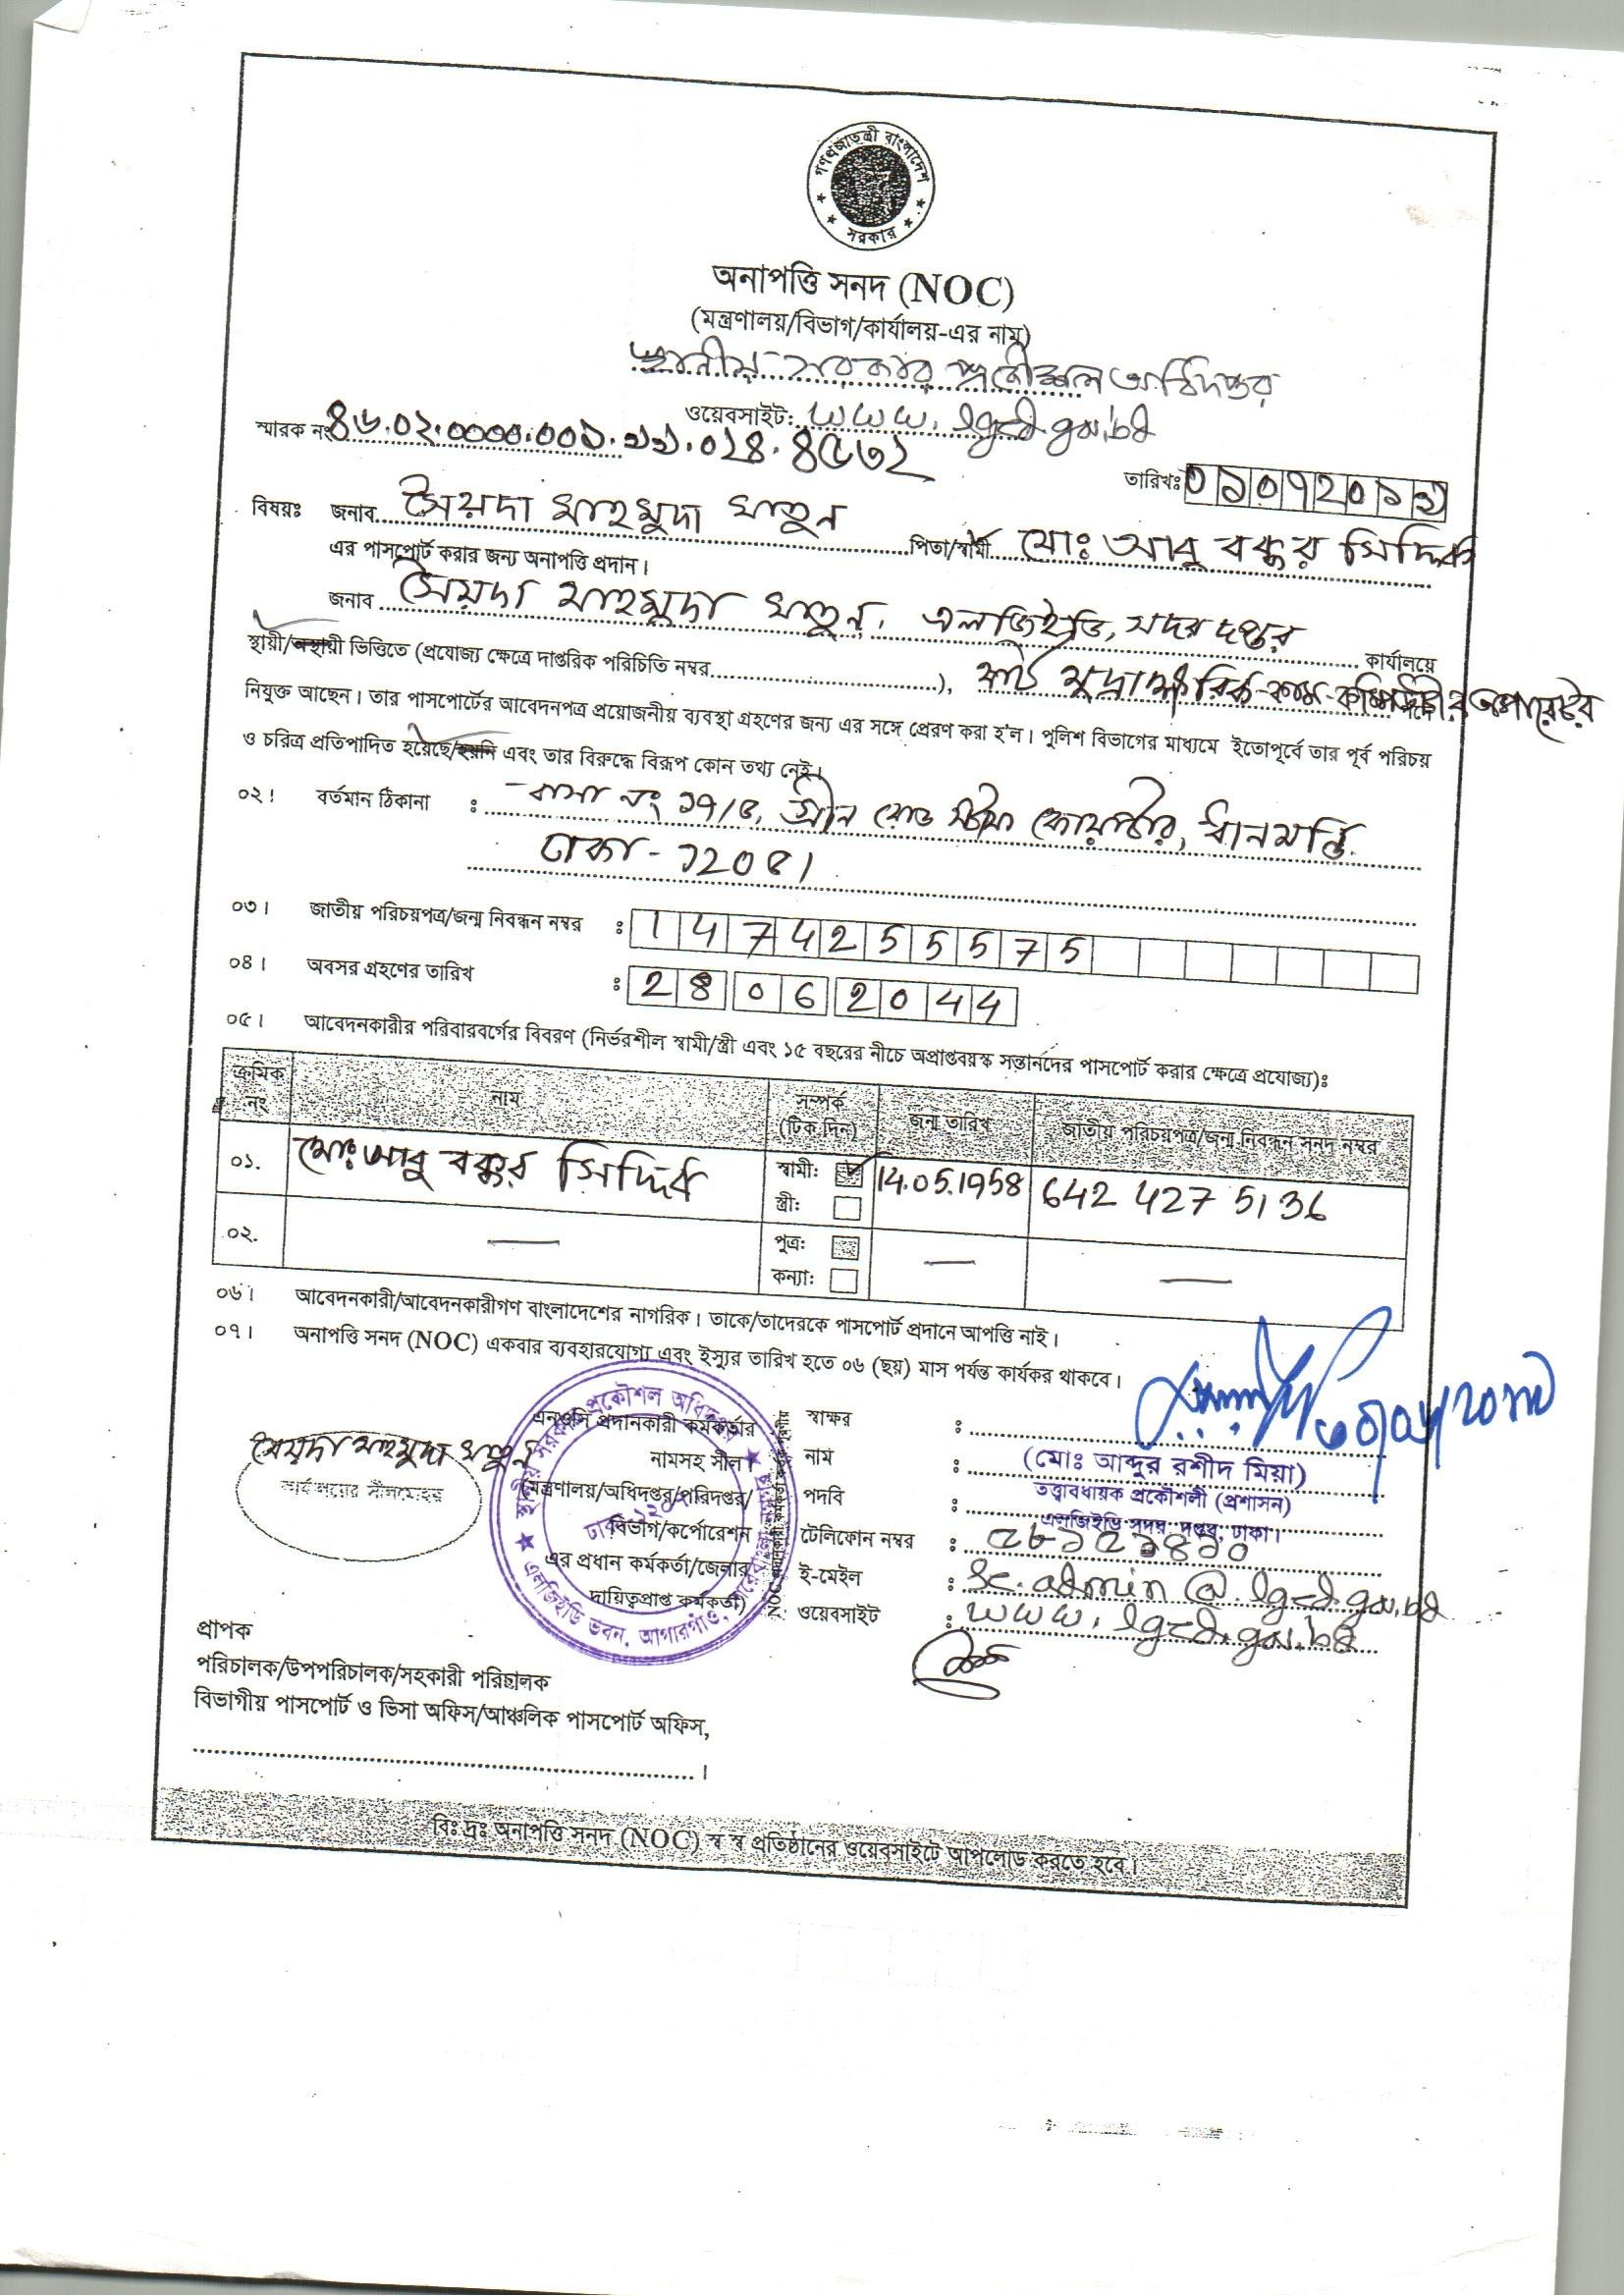 গণপ্রজাতন্ত্রী বাংলাদেশ
সরকার
অনাপত্তি সনদ (NOC)
(মন্ত্রণালয়/বিভাগ/কার্যালয়-এর নাম)
স্থানীয় সরকার প্রকৌশল অধিদপ্তর
ওয়েবসাইট: www.lged.gov.bd
স্মারক নং ৪৬.০২.০০০০.০০১.
তারিখঃ
বিষয়ঃ জনাব সৈয়দা মাহমুদা খাতুন পিতা/স্বামী মোঃ আবু বক্কর সিদ্দিক
এর পাসপোর্ট করার জন্য অনাপত্তি প্রদান।
জনাব সৈয়দা মাহমুদা খাতুন, এলজিইডি, সদর দপ্তর কার্যালয়ে
স্থায়ী/অস্থায়ী ভিত্তিতে (প্রযোজ্য ক্ষেত্রে দাপ্তরিক পরিচিতি নম্বর..............................), সাঁট মুদ্রাক্ষরিক-কাম-কম্পিউটার অপারেটর পদে
নিযুক্ত আছেন। তার পাসপোর্টের আবেদনপত্র প্রয়োজনীয় ব্যবস্থা গ্রহণের জন্য এর সঙ্গে প্রেরণ করা হ'ল। পুলিশ বিভাগের মাধ্যমে ইতোপূর্বে তার পূর্ব পরিচয়
ও চরিত্র প্রতিপাদিত হয়েছে/হয়নি এবং তার বিরুদ্ধে বিরূপ কোন তথ্য নেই।
০২। বর্তমান ঠিকানা : বাসা নং ১৭/৪, গ্রীন রোড স্টাফ কোয়ার্টার, ধানমন্ডি
ঢাকা-১২০৫।
০৩। জাতীয় পরিচয়পত্র/জন্ম নিবন্ধন নম্বর : 1474255575
০৪। অবসর গ্রহণের তারিখ : 28 06 2044
০৫। আবেদনকারীর পরিবারবর্গের বিবরণ (নির্ভরশীল স্বামী/স্ত্রী এবং ১৫ বছরের নীচে অপ্রাপ্তবয়স্ক সন্তানদের পাসপোর্ট করার ক্ষেত্রে প্রযোজ্য):
ক্রমিক নং নাম সম্পর্ক (টিক দিন) জন্ম তারিখ জাতীয় পরিচয়পত্র/জন্ম নিবন্ধন সনদ নম্বর
০১. মোঃ আবু বক্কর সিদ্দিক স্বামী: ✓ 14.05.1958 642 427 5136
স্ত্রী:
০২. — পুত্র: — —
কন্যা:
০৬। আবেদনকারী/আবেদনকারীগণ বাংলাদেশের নাগরিক। তাকে/তাদেরকে পাসপোর্ট প্রদানে আপত্তি নাই।
০৭। অনাপত্তি সনদ (NOC) একবার ব্যবহারযোগ্য এবং ইস্যুর তারিখ হতে ০৬ (ছয়) মাস পর্যন্ত কার্যকর থাকবে।
সৈয়দা মাহমুদা খাতুন
কার্যালয়ের সীলমোহর
স্থানীয় সরকার প্রকৌশল অধিদপ্তর
এলজিইডি ভবন, আগারগাঁও,
এনওসি প্রদানকারী কর্মকর্তার
নামসহ সীল।
(মন্ত্রণালয়/অধিদপ্তর/পরিদপ্তর/
বিভাগ/কর্পোরেশন
এর প্রধান কর্মকর্তা/জেলার
দায়িত্বপ্রাপ্ত কর্মকর্তা)
স্বাক্ষর :
নাম : (মোঃ আব্দুর রশীদ মিয়া)
পদবি : তত্ত্বাবধায়ক প্রকৌশলী (প্রশাসন)
এলজিইডি সদর দপ্তর, ঢাকা।
টেলিফোন নম্বর :
ই-মেইল : se.admin@lged.gov.bd
ওয়েবসাইট : www.lged.gov.bd
প্রাপক
পরিচালক/উপপরিচালক/সহকারী পরিচালক
বিভাগীয় পাসপোর্ট ও ভিসা অফিস/আঞ্চলিক পাসপোর্ট অফিস,
..............................।
বিঃ দ্রঃ অনাপত্তি সনদ (NOC) স্ব স্ব প্রতিষ্ঠানের ওয়েবসাইটে আপলোড করতে হবে।